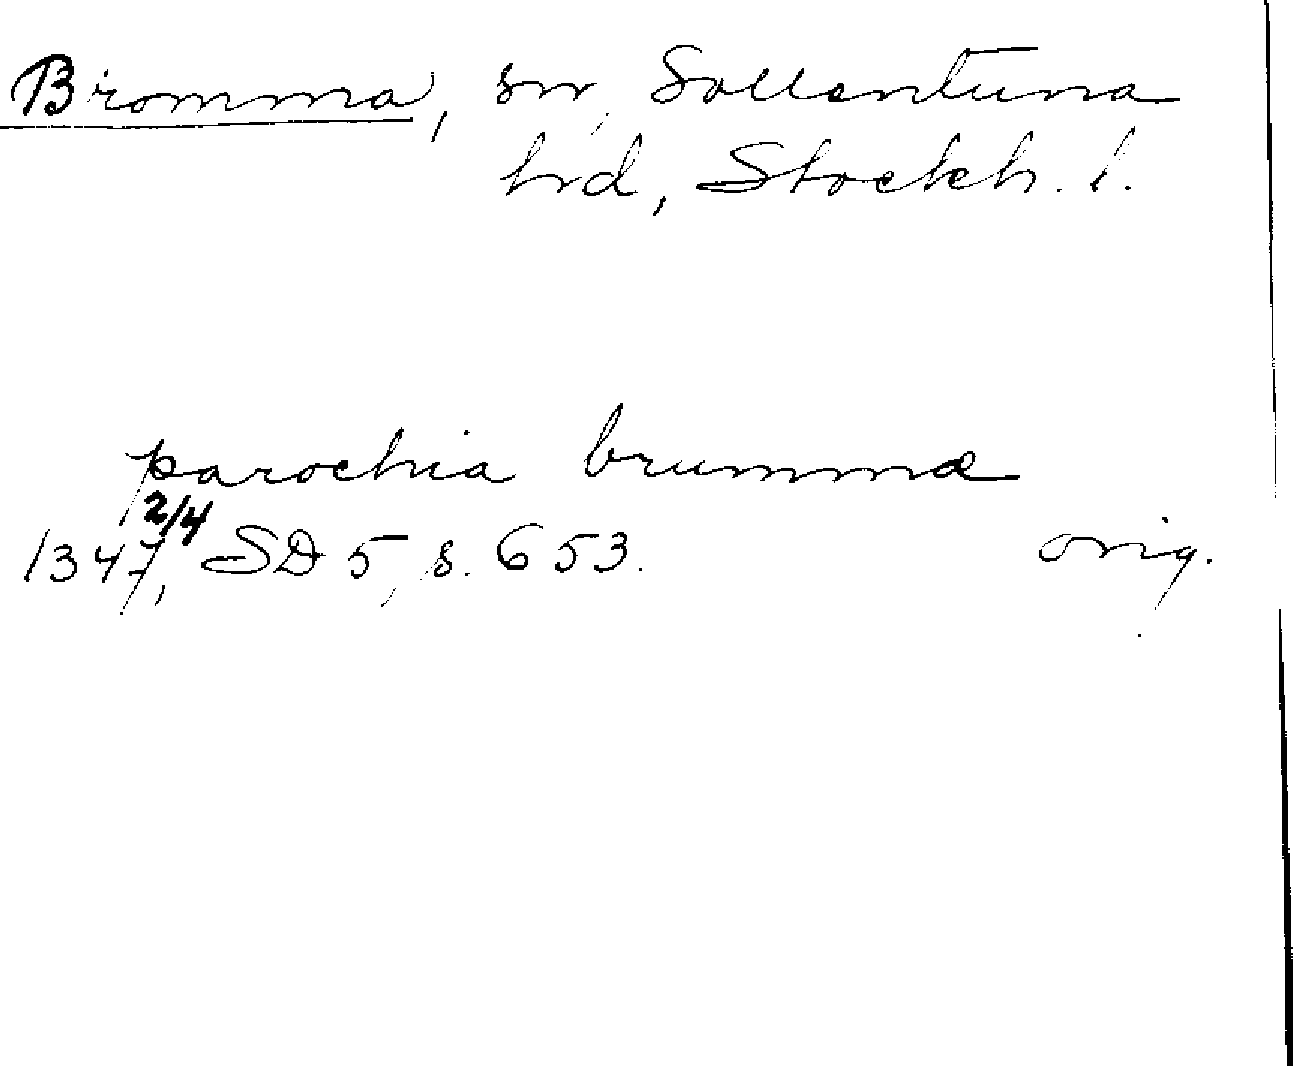 Bromma, sn, Sollentuna
hrd, Stockh. l.
parochia brummæ
1347 2/4, SD 5, s. 653. orig.